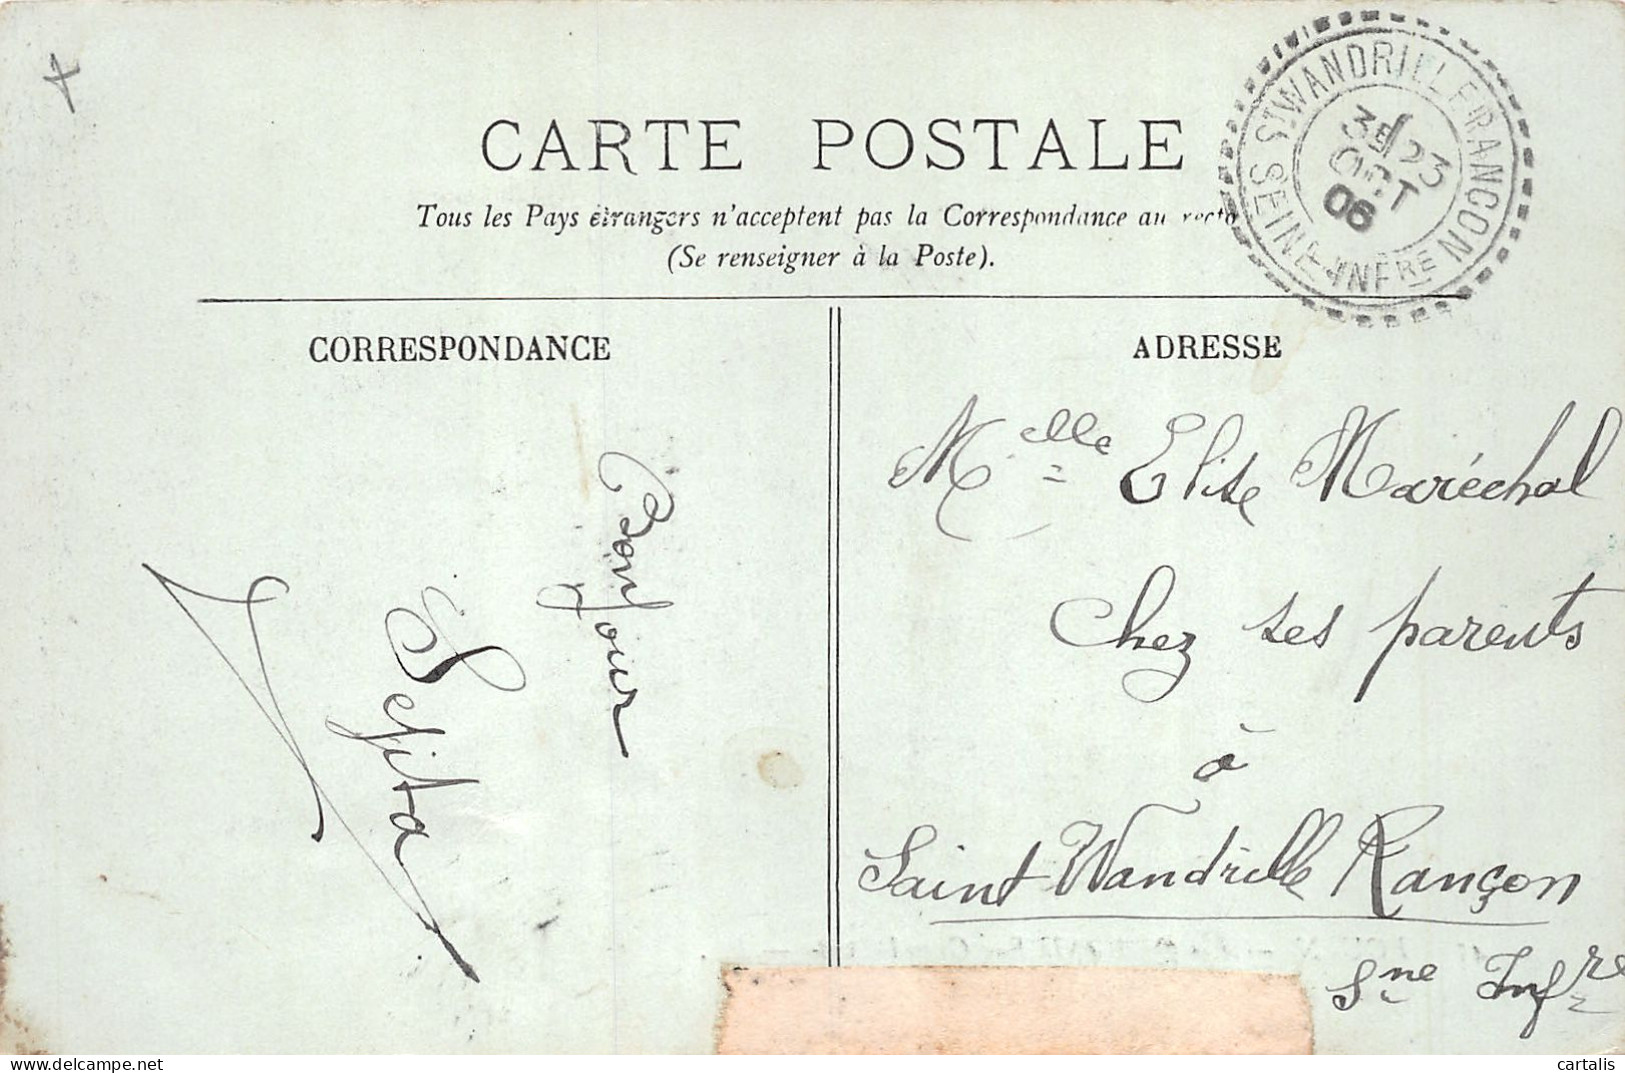 CARTE POSTALE
Tous les Pays étrangers n'acceptent pas la Correspondance au recto
(Se renseigner à la Poste).
ST WANDRILLE RANCON
3E/23
OCT
06
SEINE-INFRE
CORRESPONDANCE
Bonjour
Sejita
ADRESSE
Melle Elise Maréchal
Chez ses parents
à
Saint Wandrille Rançon
Sne Infre
cartalis